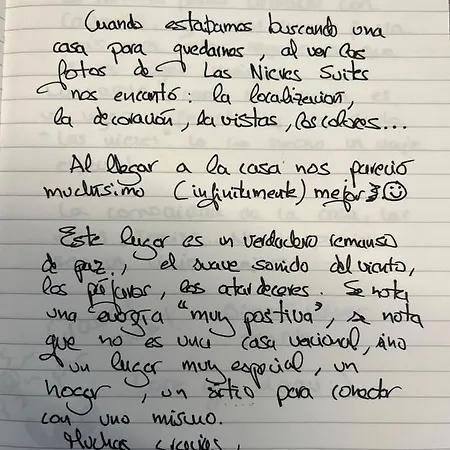 Cuando estabamos buscando una
casa para quedarnos, al ver las
fotos de Las Nieves Suites
nos encantó: la localización,
la decoración, la vistas, los colores...
Al llegar a la casa nos pareció
muchísimo (infinitamente) mejor ☺
Este lugar es un verdadero remanso
de paz., el suave sonido del viento,
los pájaros, los atardeceres. Se nota
una energía "muy positiva", se nota
que no es una casa vacional, sino
un lugar muy especial, un
hogar, un sitio para conectar
con uno mismo.
Muchas gracias,